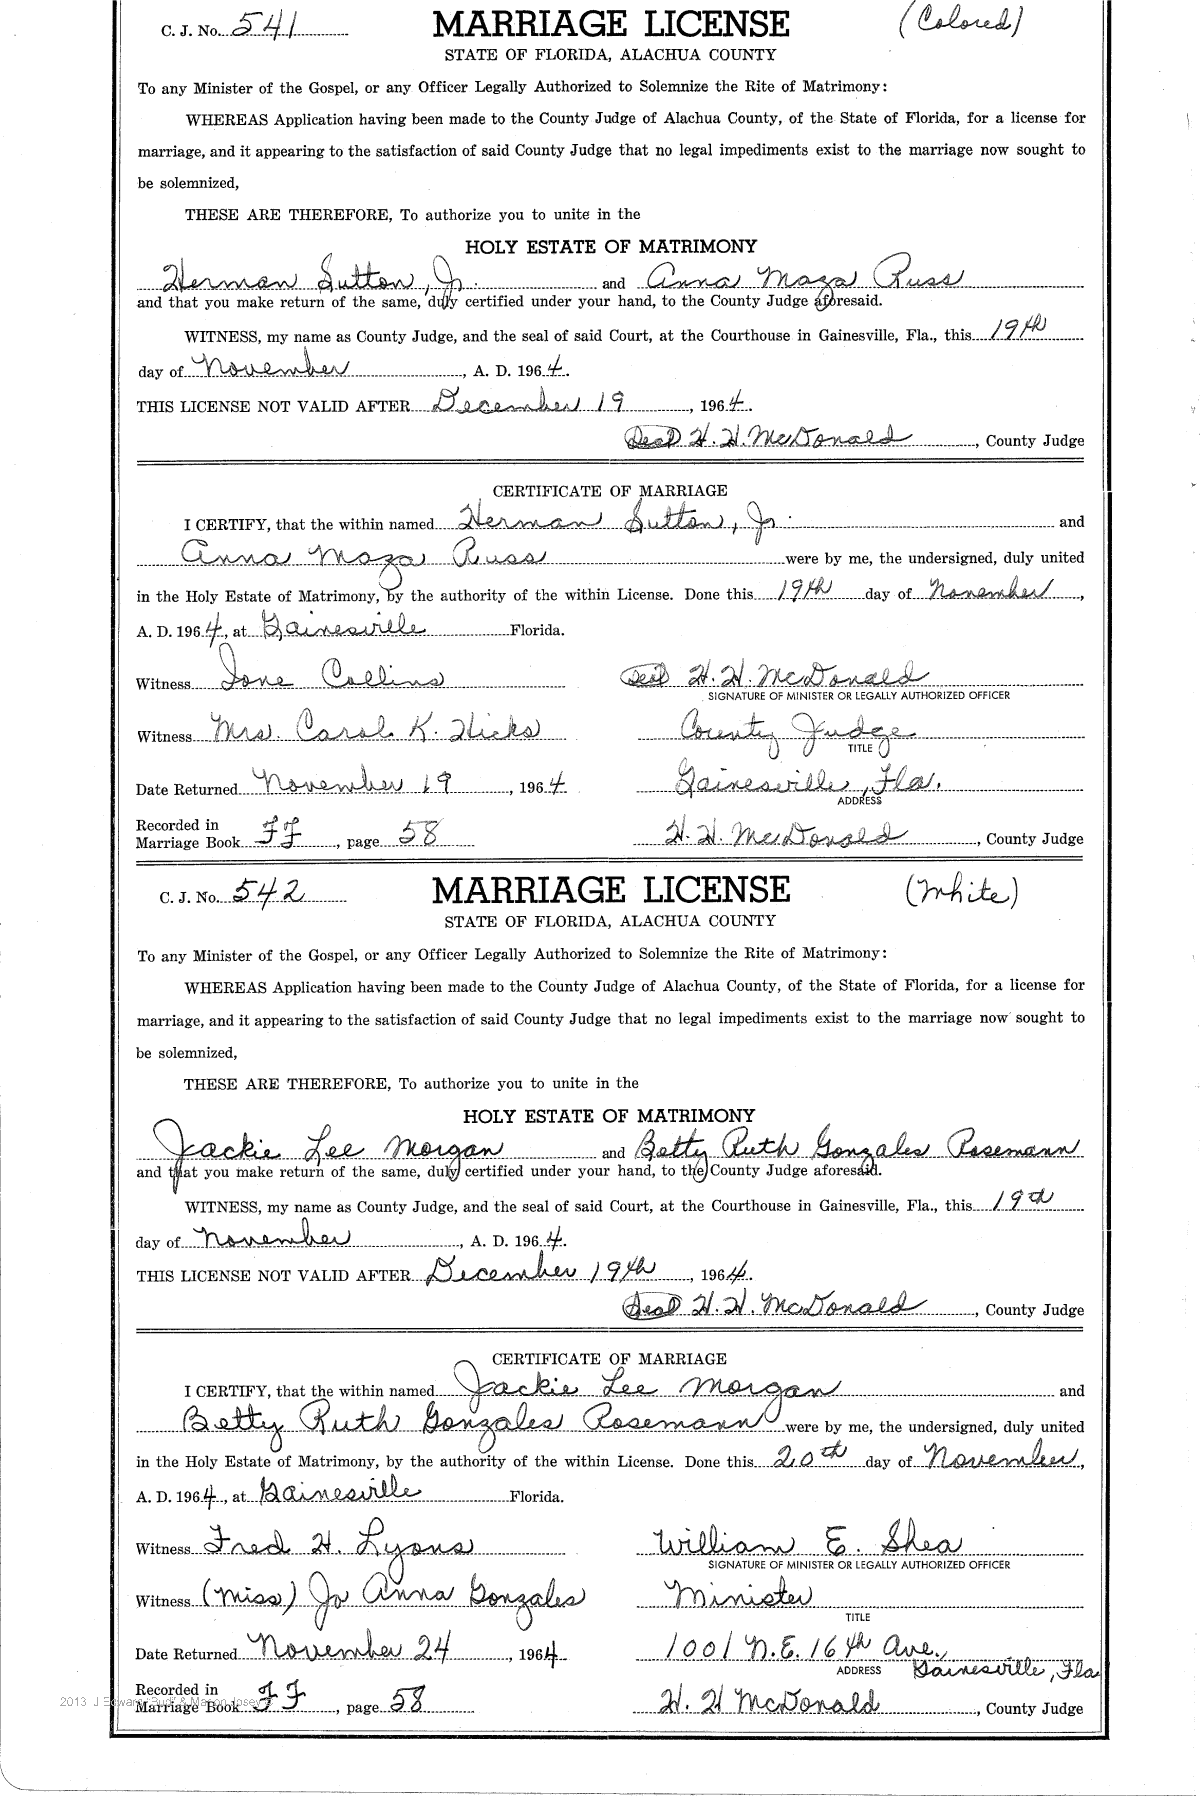 C. J. No. 541 MARRIAGE LICENSE (Colored)
STATE OF FLORIDA, ALACHUA COUNTY
To any Minister of the Gospel, or any Officer Legally Authorized to Solemnize the Rite of Matrimony:
WHEREAS Application having been made to the County Judge of Alachua County, of the State of Florida, for a license for
marriage, and it appearing to the satisfaction of said County Judge that no legal impediments exist to the marriage now sought to
be solemnized,
THESE ARE THEREFORE, To authorize you to unite in the
HOLY ESTATE OF MATRIMONY
Herman Sutton, Jr. and Anna Maza Russ
and that you make return of the same, duly certified under your hand, to the County Judge aforesaid.
WITNESS, my name as County Judge, and the seal of said Court, at the Courthouse in Gainesville, Fla., this 19th
day of November, A. D. 1964.
THIS LICENSE NOT VALID AFTER December 19, 1964.
Seal H. H. McDonald, County Judge
CERTIFICATE OF MARRIAGE
I CERTIFY, that the within named Herman Sutton, Jr. and
Anna Maza Russ were by me, the undersigned, duly united
in the Holy Estate of Matrimony, by the authority of the within License. Done this 19th day of November,
A. D. 1964, at Gainesville Florida.
Witness Ione Collins Seal H. H. McDonald
SIGNATURE OF MINISTER OR LEGALLY AUTHORIZED OFFICER
Witness Mrs. Carol K. Hicks County Judge
TITLE
Date Returned November 19, 1964 Gainesville, Fla.
ADDRESS
Recorded in
Marriage Book FF, page 58 H. H. McDonald, County Judge
C. J. No. 542 MARRIAGE LICENSE (White)
STATE OF FLORIDA, ALACHUA COUNTY
To any Minister of the Gospel, or any Officer Legally Authorized to Solemnize the Rite of Matrimony:
WHEREAS Application having been made to the County Judge of Alachua County, of the State of Florida, for a license for
marriage, and it appearing to the satisfaction of said County Judge that no legal impediments exist to the marriage now sought to
be solemnized,
THESE ARE THEREFORE, To authorize you to unite in the
HOLY ESTATE OF MATRIMONY
Jackie Lee Morgan and Betty Ruth Gonzales Rosemann
and that you make return of the same, duly certified under your hand, to the County Judge aforesaid.
WITNESS, my name as County Judge, and the seal of said Court, at the Courthouse in Gainesville, Fla., this 19th
day of November, A. D. 1964.
THIS LICENSE NOT VALID AFTER December 19th, 1964.
Seal H. H. McDonald, County Judge
CERTIFICATE OF MARRIAGE
I CERTIFY, that the within named Jackie Lee Morgan and
Betty Ruth Gonzales Rosemann were by me, the undersigned, duly united
in the Holy Estate of Matrimony, by the authority of the within License. Done this 20th day of November,
A. D. 1964, at Gainesville Florida.
Witness Fred H. Lyons William E. Shea
SIGNATURE OF MINISTER OR LEGALLY AUTHORIZED OFFICER
Witness (Miss) Jo Anna Gonzales Minister
TITLE
Date Returned November 24, 1964 1001 N.E. 16th Ave.,
ADDRESS Gainesville, Fla
Recorded in
Marriage Book FF, page 58 H. H McDonald, County Judge
2013 J Edward "Bud" & Marion Josey